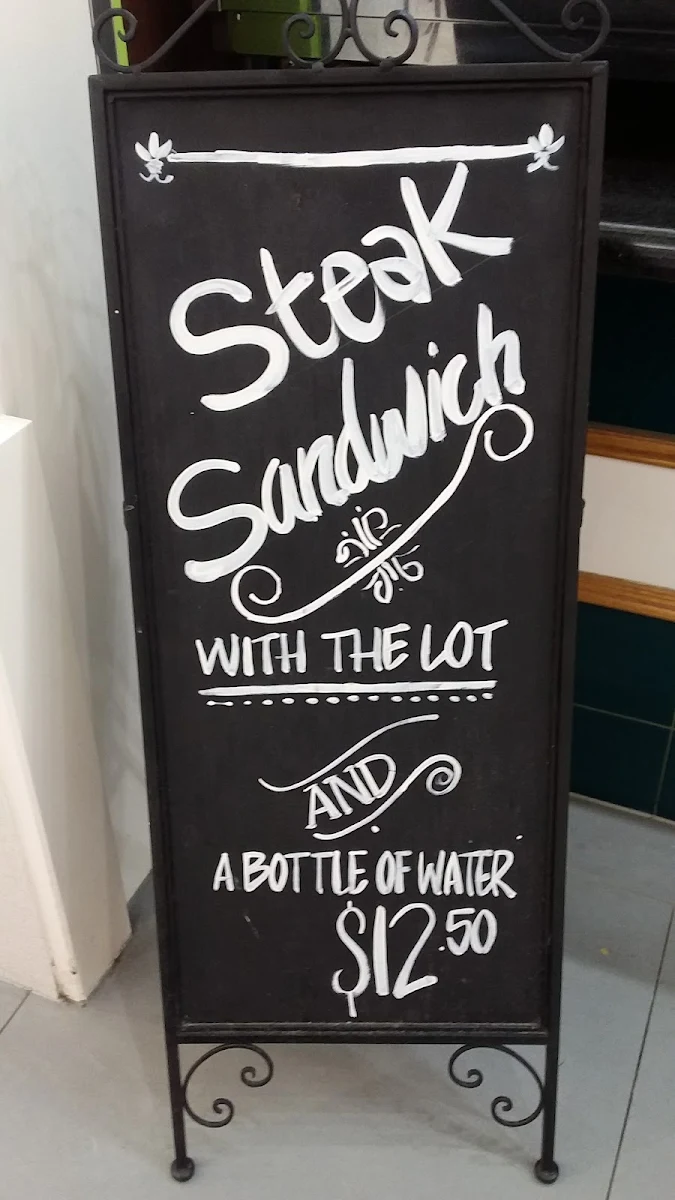 Steak
Sandwich
WITH THE LOT
AND
A BOTTLE OF WATER
$12.50